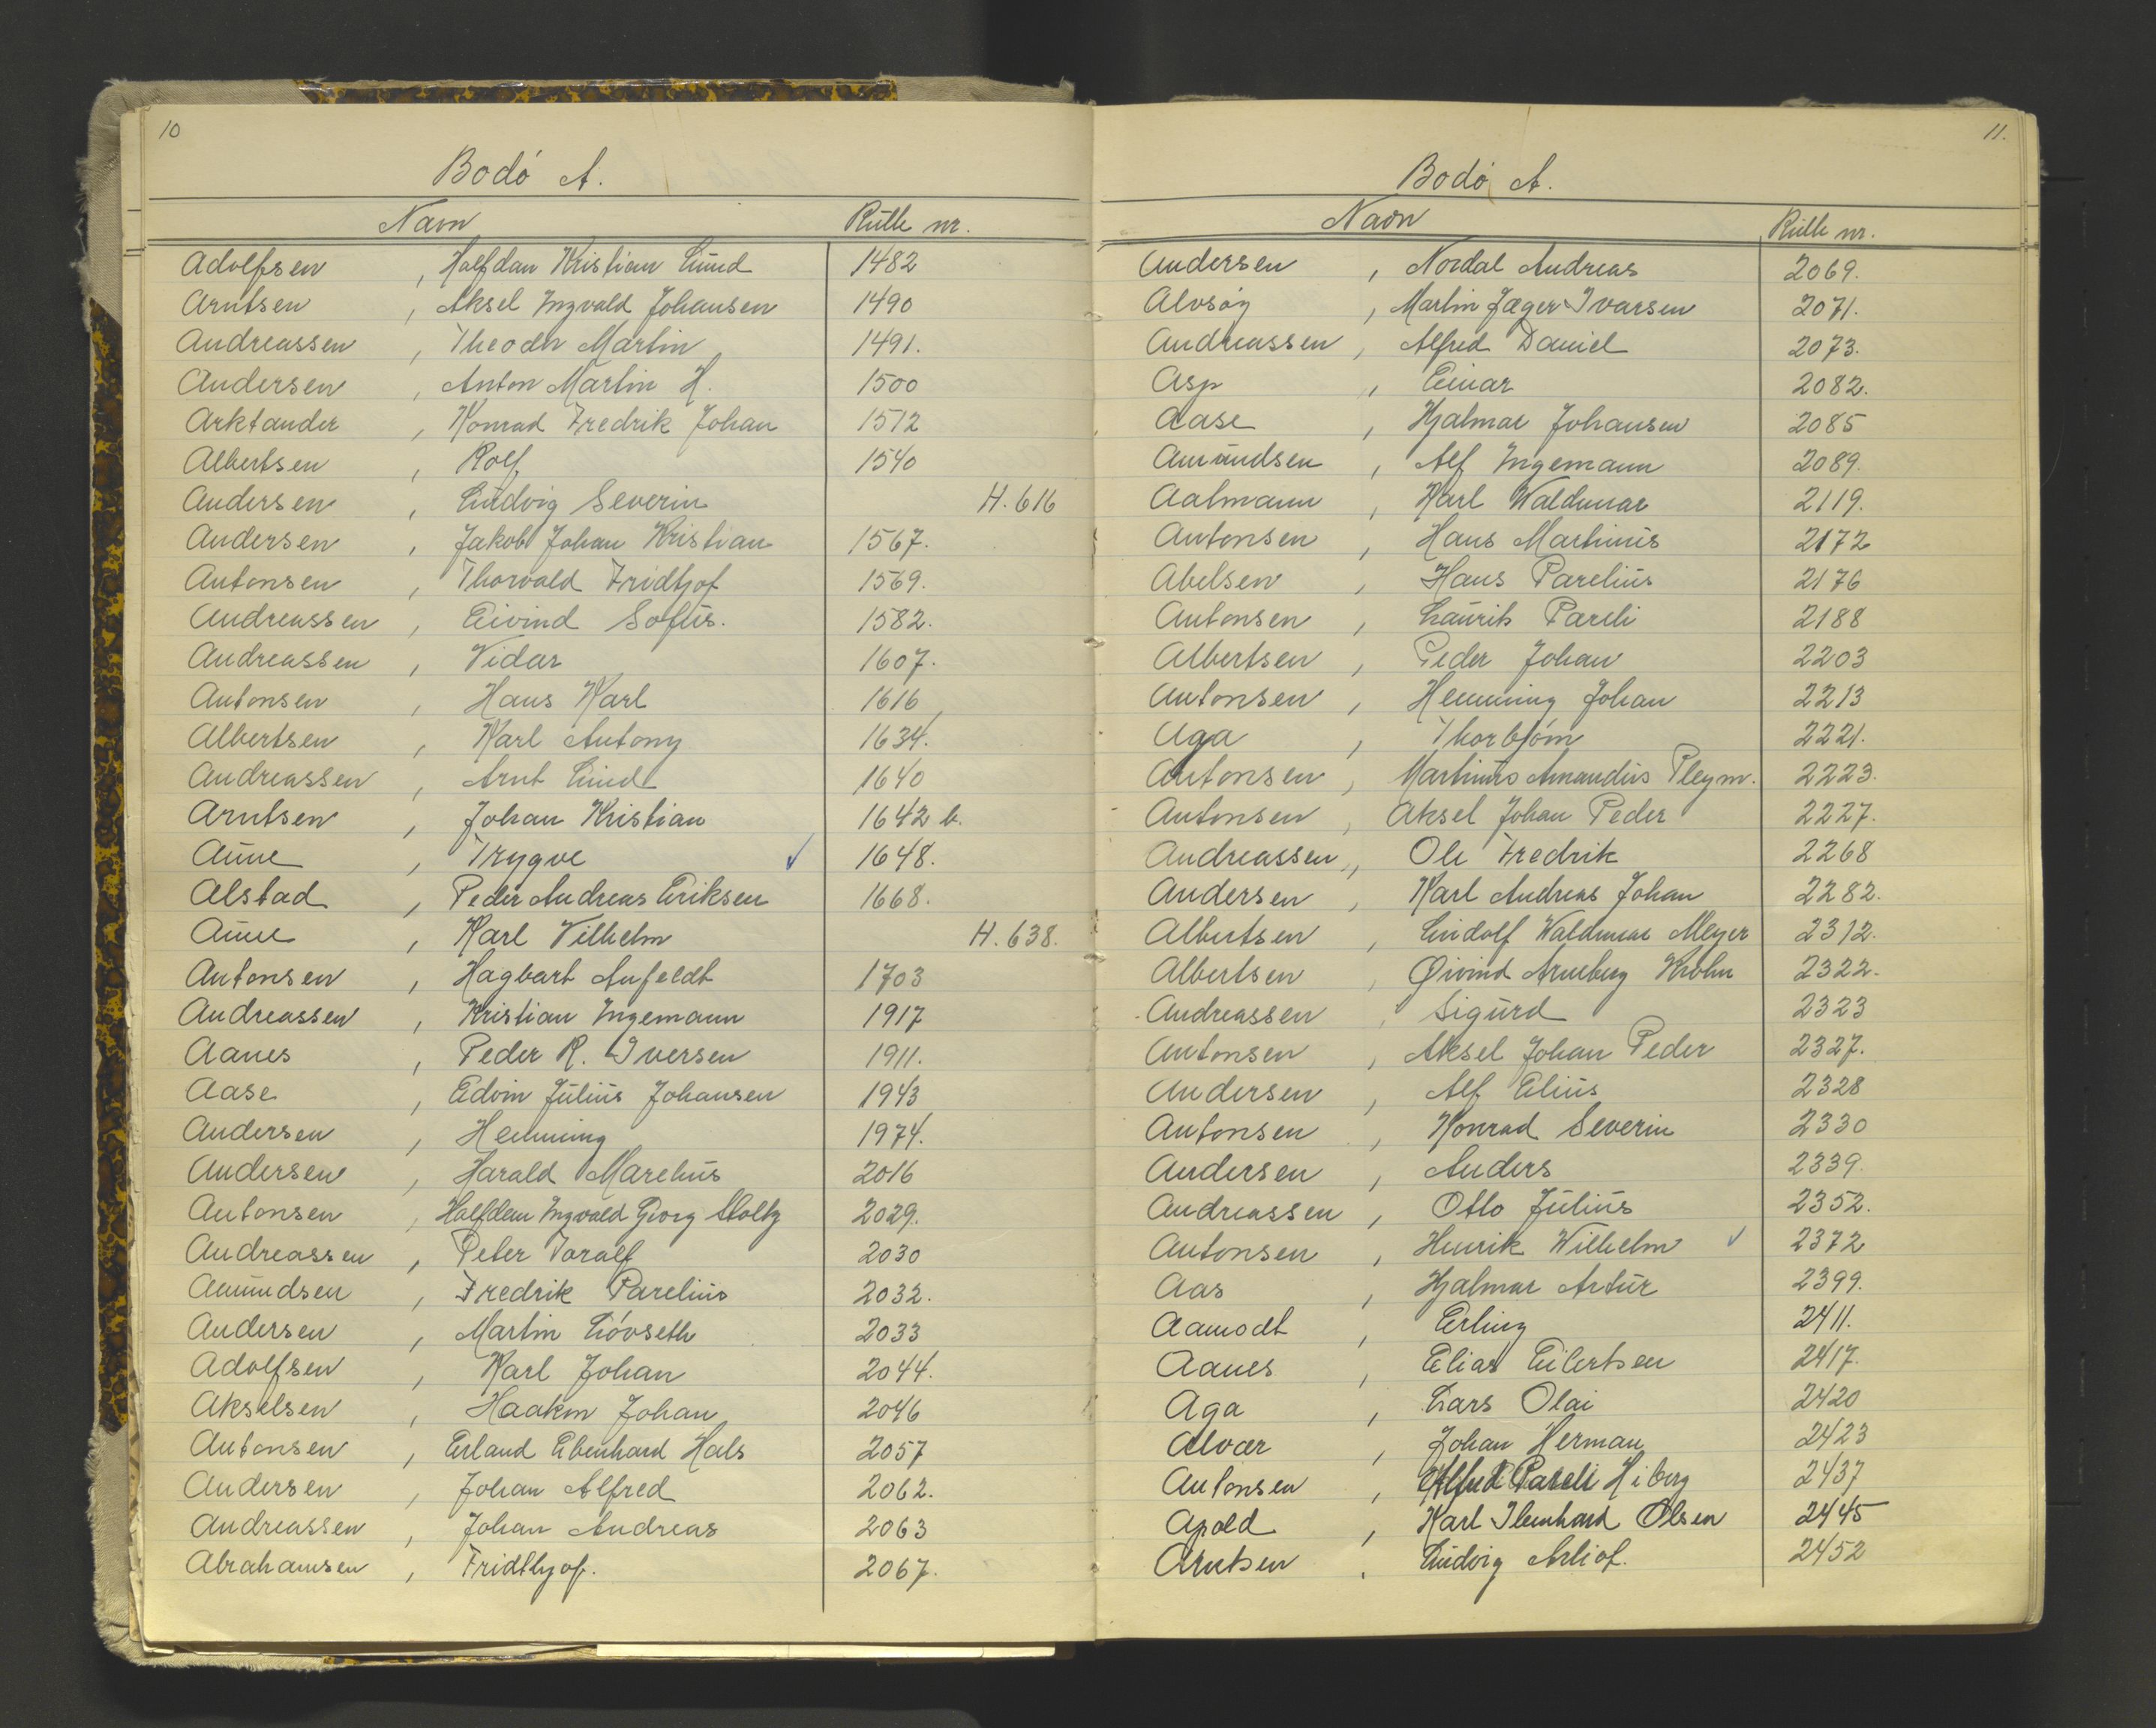 10
Bodó A.
Navn Rulle nr.
Adolfsen , Halfdan Kristian Lund 1482
Arntsen , Aksel Ingvald Johansen 1490
Andreassen , Theodor Martin 1491.
Andersen , Anton Martin H. 1500
Arktander , Konrad Fredrik Johan 1512
Albertsen , Rolf 1540
Andersen , Ludvig Severin H. 616
Andersen , Jakob Johan Kristian 1567.
Antonsen , Thorvald Fridtjof 1569.
Andreassen , Eivind Sofus. 1582.
Andreassen , Vidar 1607.
Antonsen , Hans Karl 1616
Albertsen , Karl Antony 1634.
Andreassen , Arnt Lind 1640
Arntsen , Johan Kristian 1642 b.
Aune , Trygve ✓ 1648.
Alstad , Peder Andreas Eriksen 1668.
Aune , Karl Vilhelm H. 638.
Antonsen , Hagbart Anfeldt 1703
Andreassen , Kristian Ingemann 1917
Aanes , Peder R. Iversen 1911.
Aase , Edvin Julius Johansen 1943
Andersen , Henning 1974.
Andersen , Harald Marelius 2016
Antonsen , Halfdan Ingvald Georg Stoltz 2029.
Andreassen , Peter Toralf 2030
Amundsen , Fredrik Parelius 2032.
Andersen , Martin Lóvseth 2033
Adolfsen , Karl Johan 2044.
Akselsen , Haakon Johan 2046
Antonsen , Erland Ebenhard Hals 2057
Andersen , Johan Alfred 2062.
Andreassen , Johan Andreas 2063
Abrahamsen , Fridthjof. 2067.
11.
Bodó A.
Navn Rulle nr.
Andersen , Nordal Andreas 2069.
Alvsóy , Martin Jæger Ivarsen 2071.
Andreassen , Alfred Daniel 2073.
Asp , Einar 2082.
Aase , Hjalmar Johansen 2085
Amundsen , Alf Ingemann 2089.
Aalmann , Karl Waldemar 2119.
Antonsen , Hans Martinus 2172
Abelsen , Hans Parelius 2176
Antonsen , Laurits Pareli 2188
Albertsen , Peder Johan 2203
Antonsen , Henning Johan 2213
Aga , Thorbjórn 2221.
Antonsen , Martinus Amandus Pleym. 2223.
Antonsen , Aksel Johan Peder 2227.
Andreassen , Ole Fredrik 2268
Andersen , Karl Andreas Johan 2282.
Albertsen , Lindolf Waldemar Meyer 2312.
Albertsen , Øivind Arneberg Krohn 2322.
Andreassen , Sigurd 2323
Antonsen , Aksel Johan Peder 2327.
Andersen , Alf Elius 2328
Antonsen , Konrad Severin 2330
Andersen , Anders 2339.
Andreassen , Otto Julius 2352.
Antonsen , Henrik Wilhelm ✓ 2372
Aas , Hjalmar Artur 2399.
Aamodt , Erling 2411.
Aanes , Elias Eilertsen 2417.
Aga , Lars Olai 2420
Alvær , Johan Herman 2423
Antonsen , Alfred Pareli Hiberg 2437
Apold , Karl Olsen 2445
Arntsen , Ludvig 2452